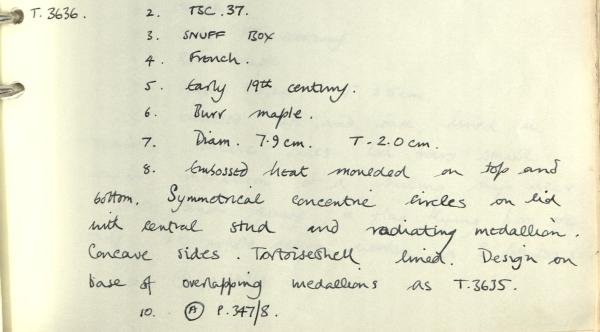 T.3636. 2. TSC.37.
3. SNUFF BOX
4. French.
5. Early 19th century.
6. Burr maple.
7. Diam. 7.9 cm. T - 2.0 cm.
8. Embossed heat moulded on top and
bottom. Symmetrical concentric circles on lid
with central stud and radiating medallion.
Concave sides. Tortoiseshell lined. Design on
base of overlapping medallions as T.3635.
10. (A) P.347/8.